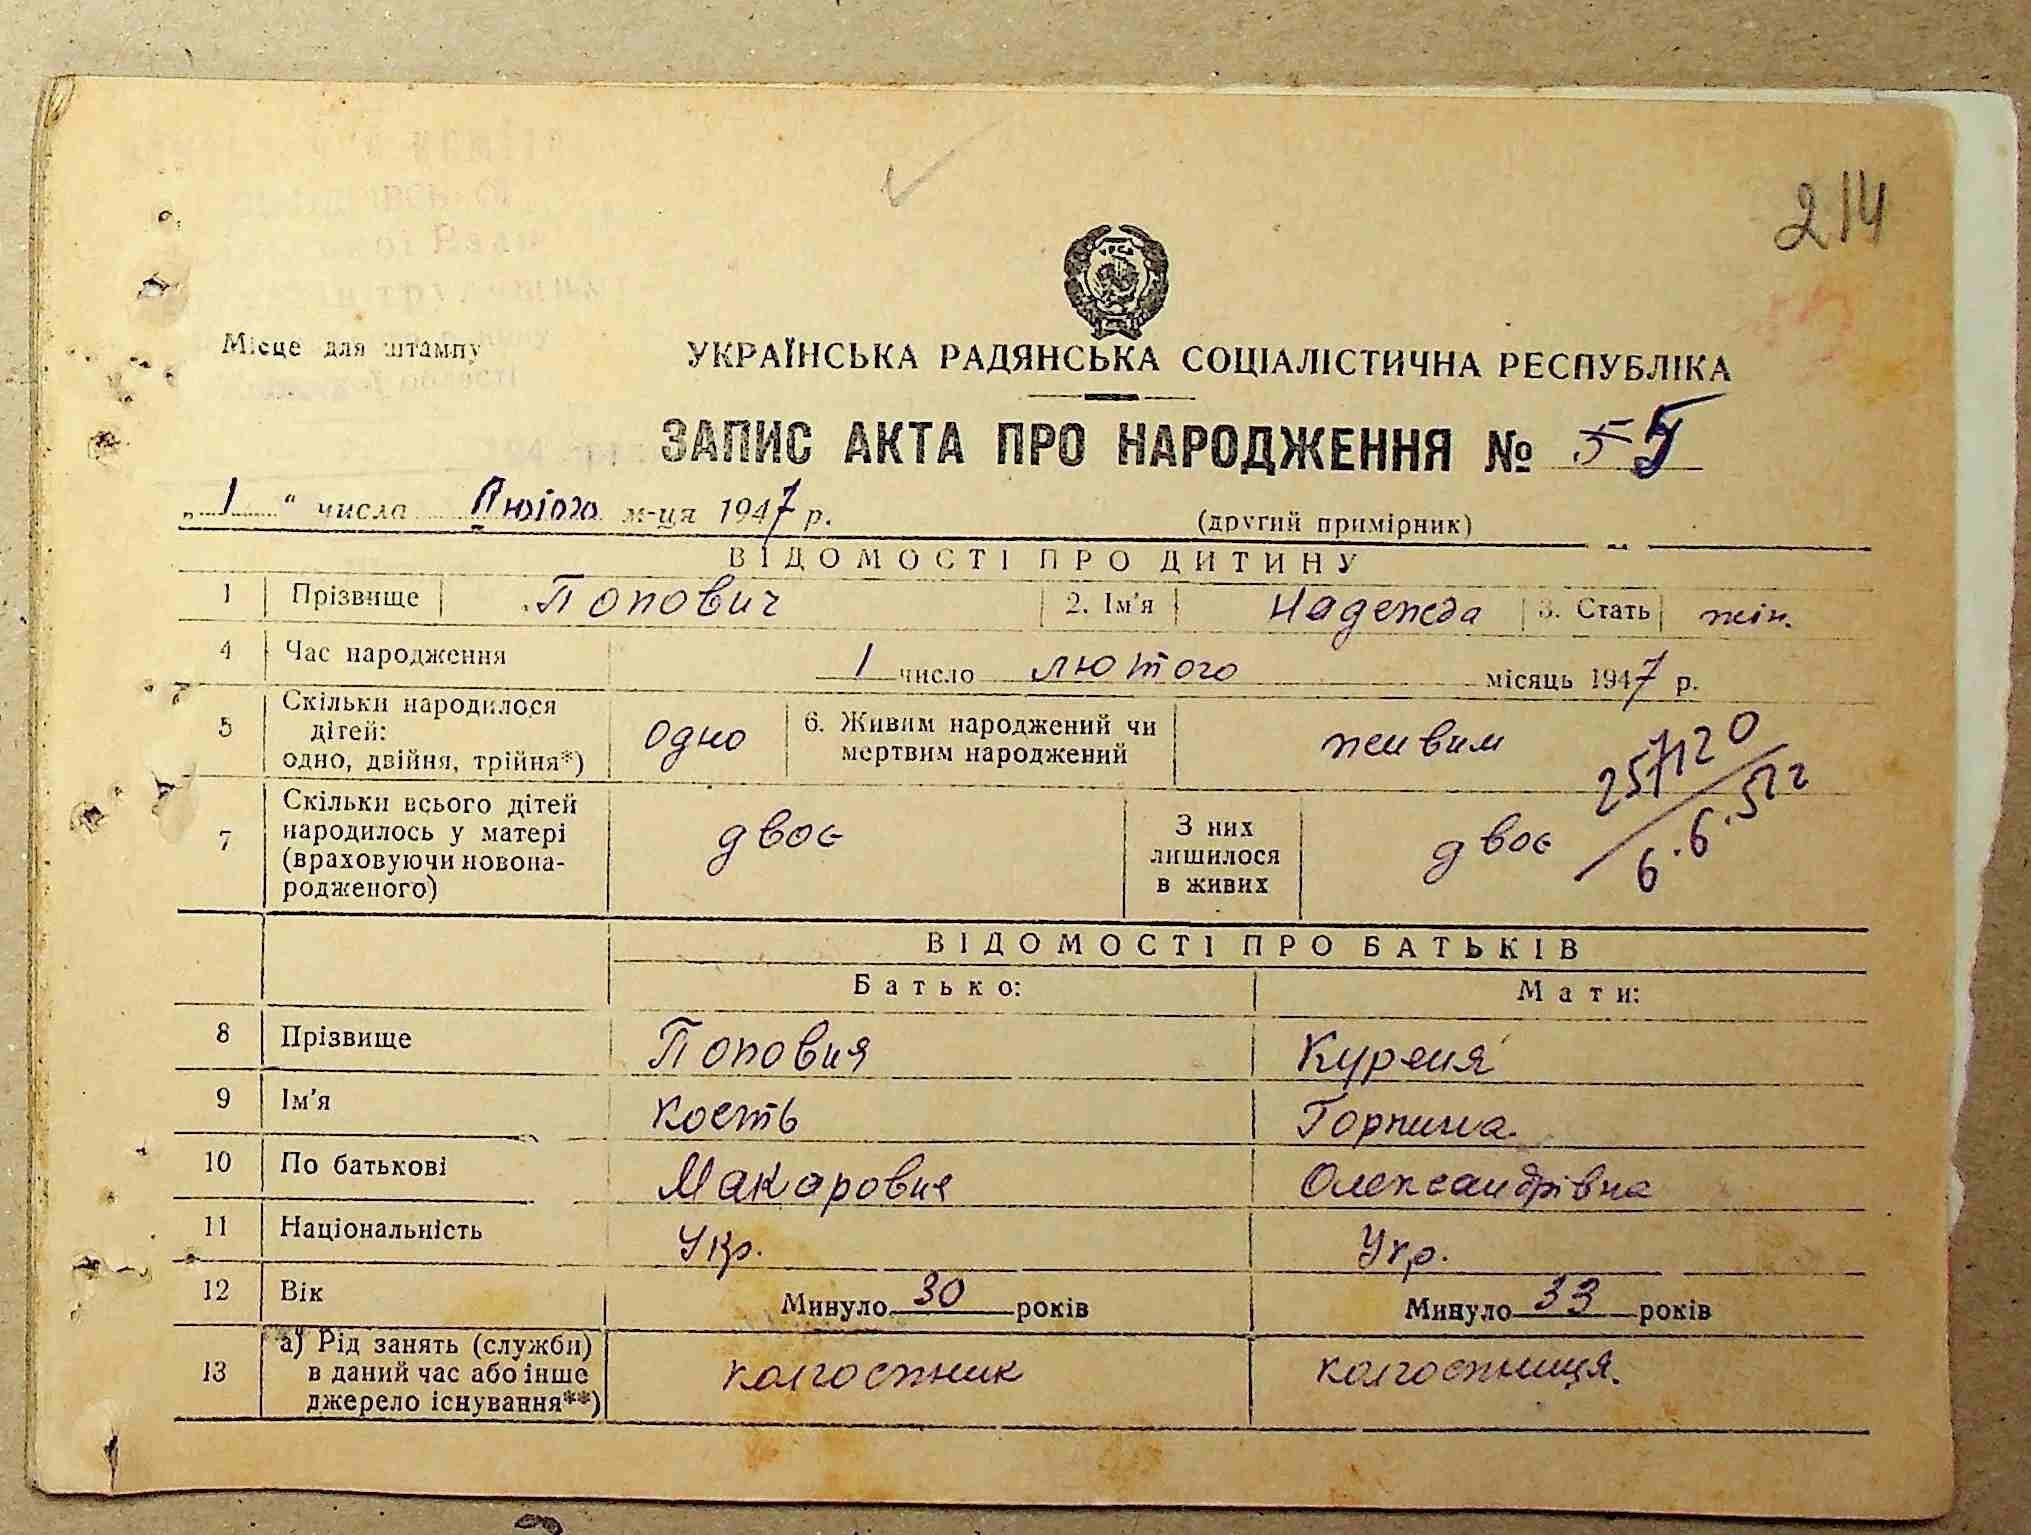 214
Місце для штампу
УКРАЇНСЬКА РАДЯНСЬКА СОЦІАЛІСТИЧНА РЕСПУБЛІКА
ЗАПИС АКТА ПРО НАРОДЖЕННЯ № 5
„ 1 “ числа Лютого м-ця 1947 р.
(другий примірник)
ВІДОМОСТІ ПРО ДИТИНУ
1 Прізвище Попович 2. Ім'я Надежда 3. Стать жін.
4 Час народження 1 число лютого місяць 1947 р.
5 Скільки народилося дітей: одно, двійня, трійня*) одно 6. Живим народжений чи мертвим народжений живим
257120
6.6.51г
7 Скільки всього дітей народилось у матері (враховуючи новонародженого) двоє З них лишилося в живих двоє
ВІДОМОСТІ ПРО БАТЬКІВ
Батько: Мати:
8 Прізвище Попович
9 Ім'я Кость Горпина
10 По батькові Макарович Олександрівна
11 Національність Укр. Укр.
12 Вік Минуло 30 років Минуло 33 років
13 а) Рід занять (служби) в даний час або інше джерело існування**) колгоспник колгоспниця.